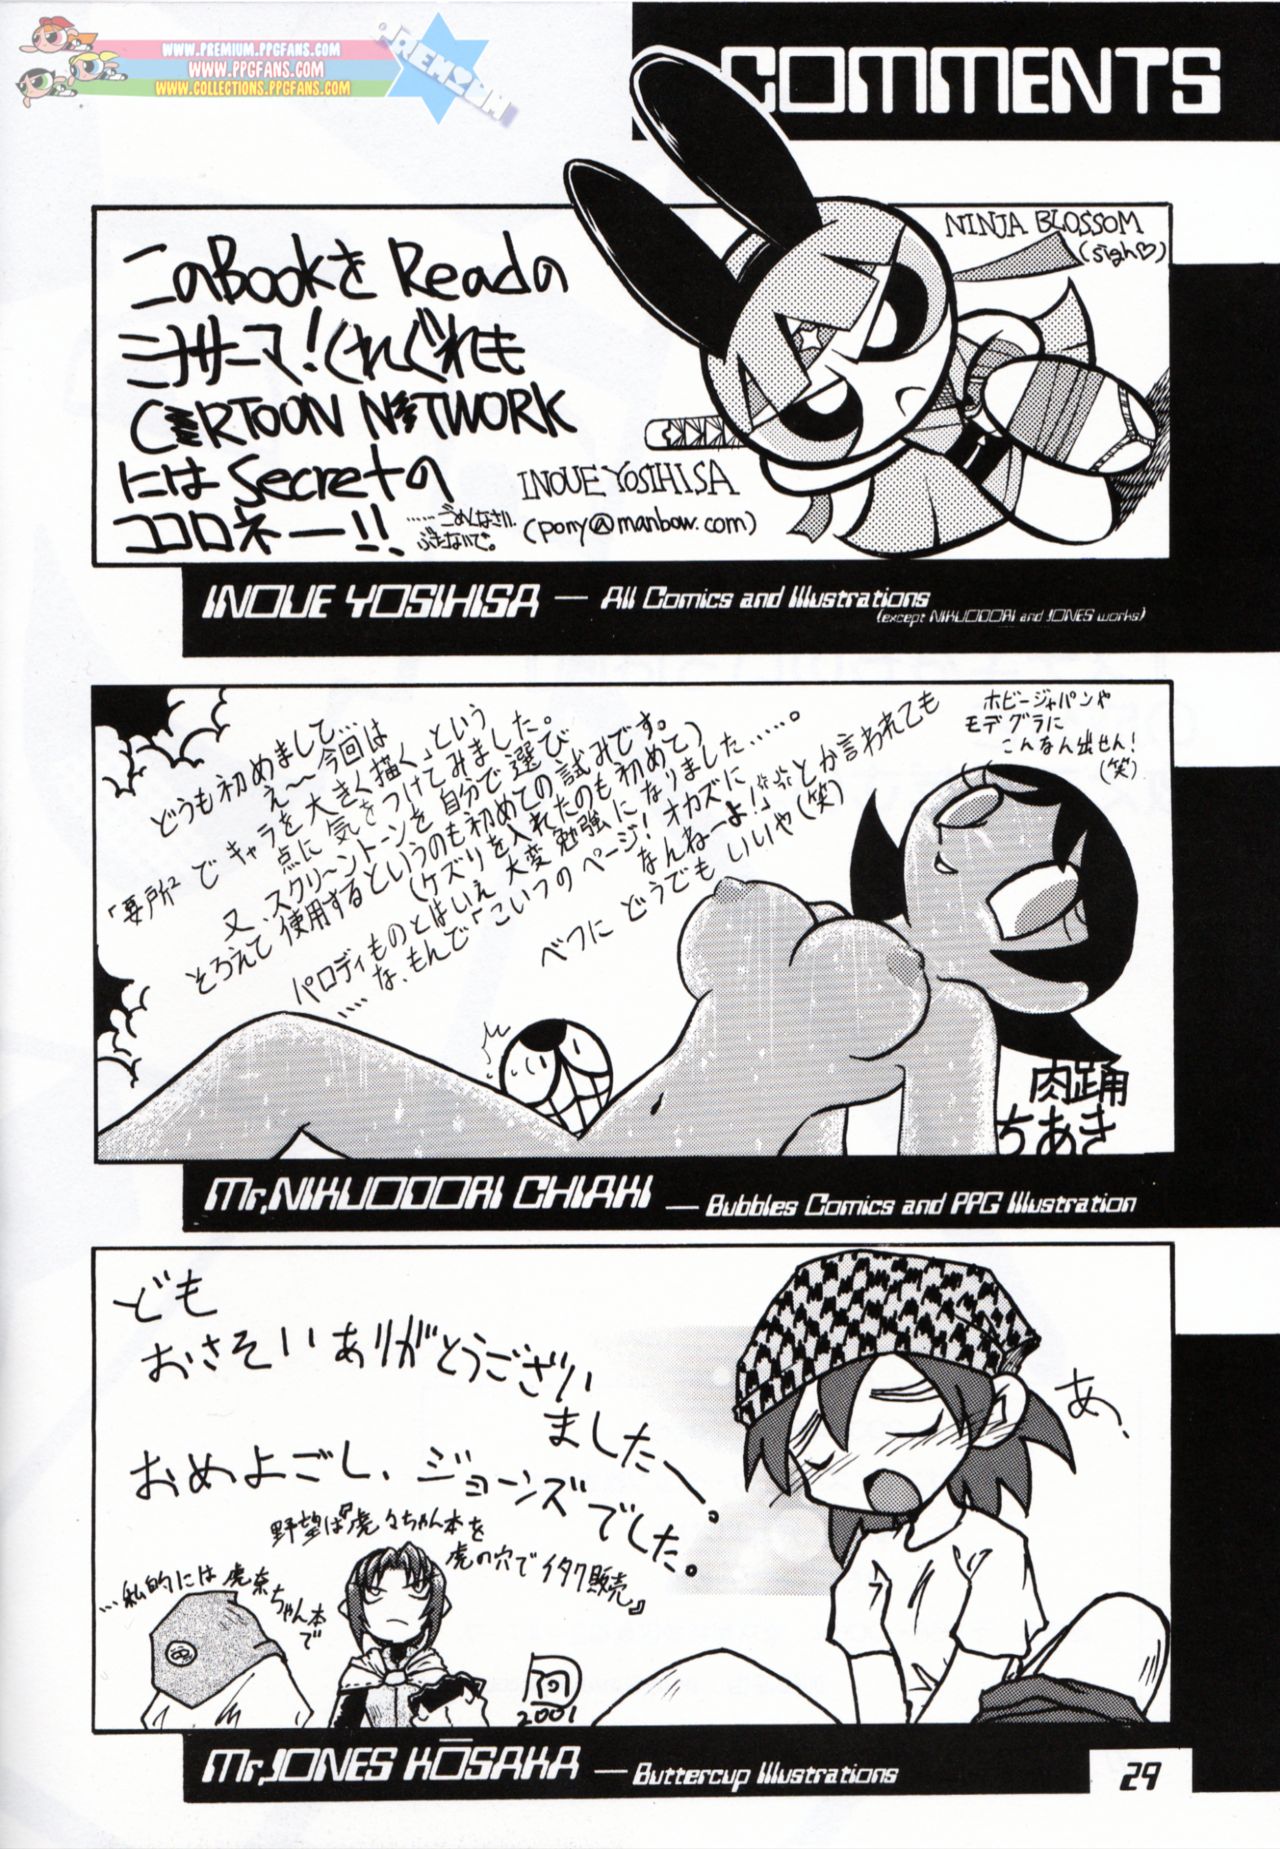 WWW.PREMIUM.PPGFANS.COM
WWW.PPGFANS.COM
WWW.COLLECTIONS.PPGFANS.COM
PREMIUM
COMMENTS
NINJA BLOSSOM
(sigh♡)
このBookを Readの
ミナサーマ!くれぐれも
CARTOON NETWORK
には Secretの
ココロネー!!
……ごめんなさい、
ぶたないで。
INOUE YOSIHISA
(pony@manbow.com)
INOUE YOSIHISA — All Comics and Illustrations
(except NIKUODORI and JONES works)
どうも初めまして…
え〜今回は
「要所²でキャラを大きく描く」という
点に気をつけてみました。
又、スクリーントーンを自分で選び
そろえて使用するというのも初めての試みです。
(ケズリを入れたのも初めて)
パロディものとはいえ大変勉強になりました……。
……な、もんで「こいつのページ!オカズに
なんねーよ!」とか言われても
べつにどうでもいいや(笑)
ホビージャパンや
モデグラに
こんなん出せん!
(笑)
肉踊
ちあき
Mr,NIKUODORI CHIAKI — Bubbles Comics and PPG Illustration
ども
おさそいありがとうござい
ましたー。
おめよごし、ジョーンズでした。
あ、
野望は『虎々ちゃん本を
虎の穴でイタク販売』
…私的には虎奈ちゃん本
で
2001
Mr,JONES KŌSAKA — Buttercup Illustrations
29